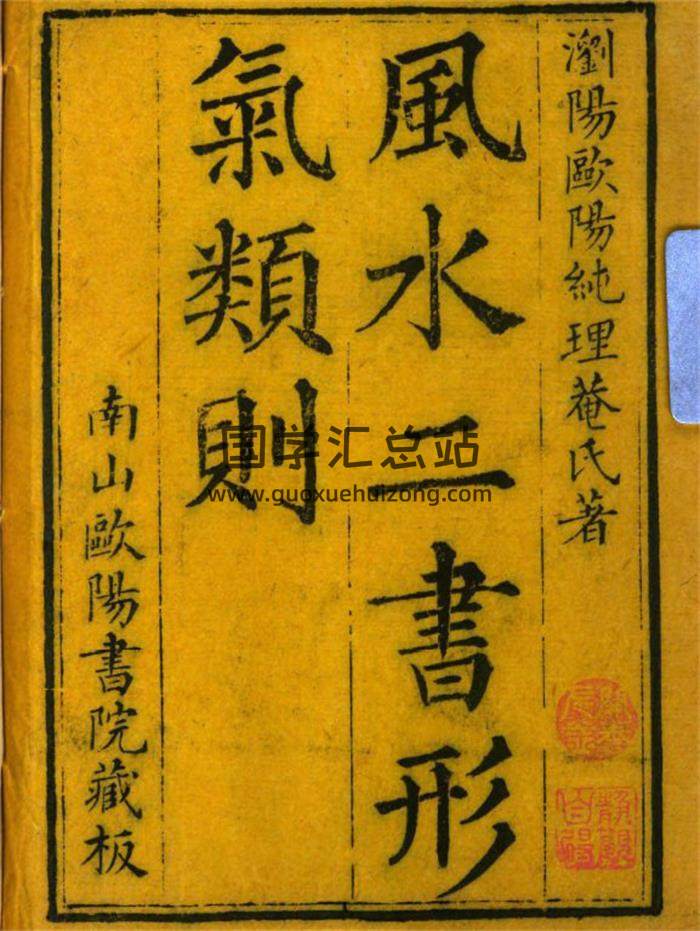 瀏陽歐陽純理菴氏著
風水二書形
氣類則
南山歐陽書院藏板
国学汇总站
www.guoxuehuizong.com